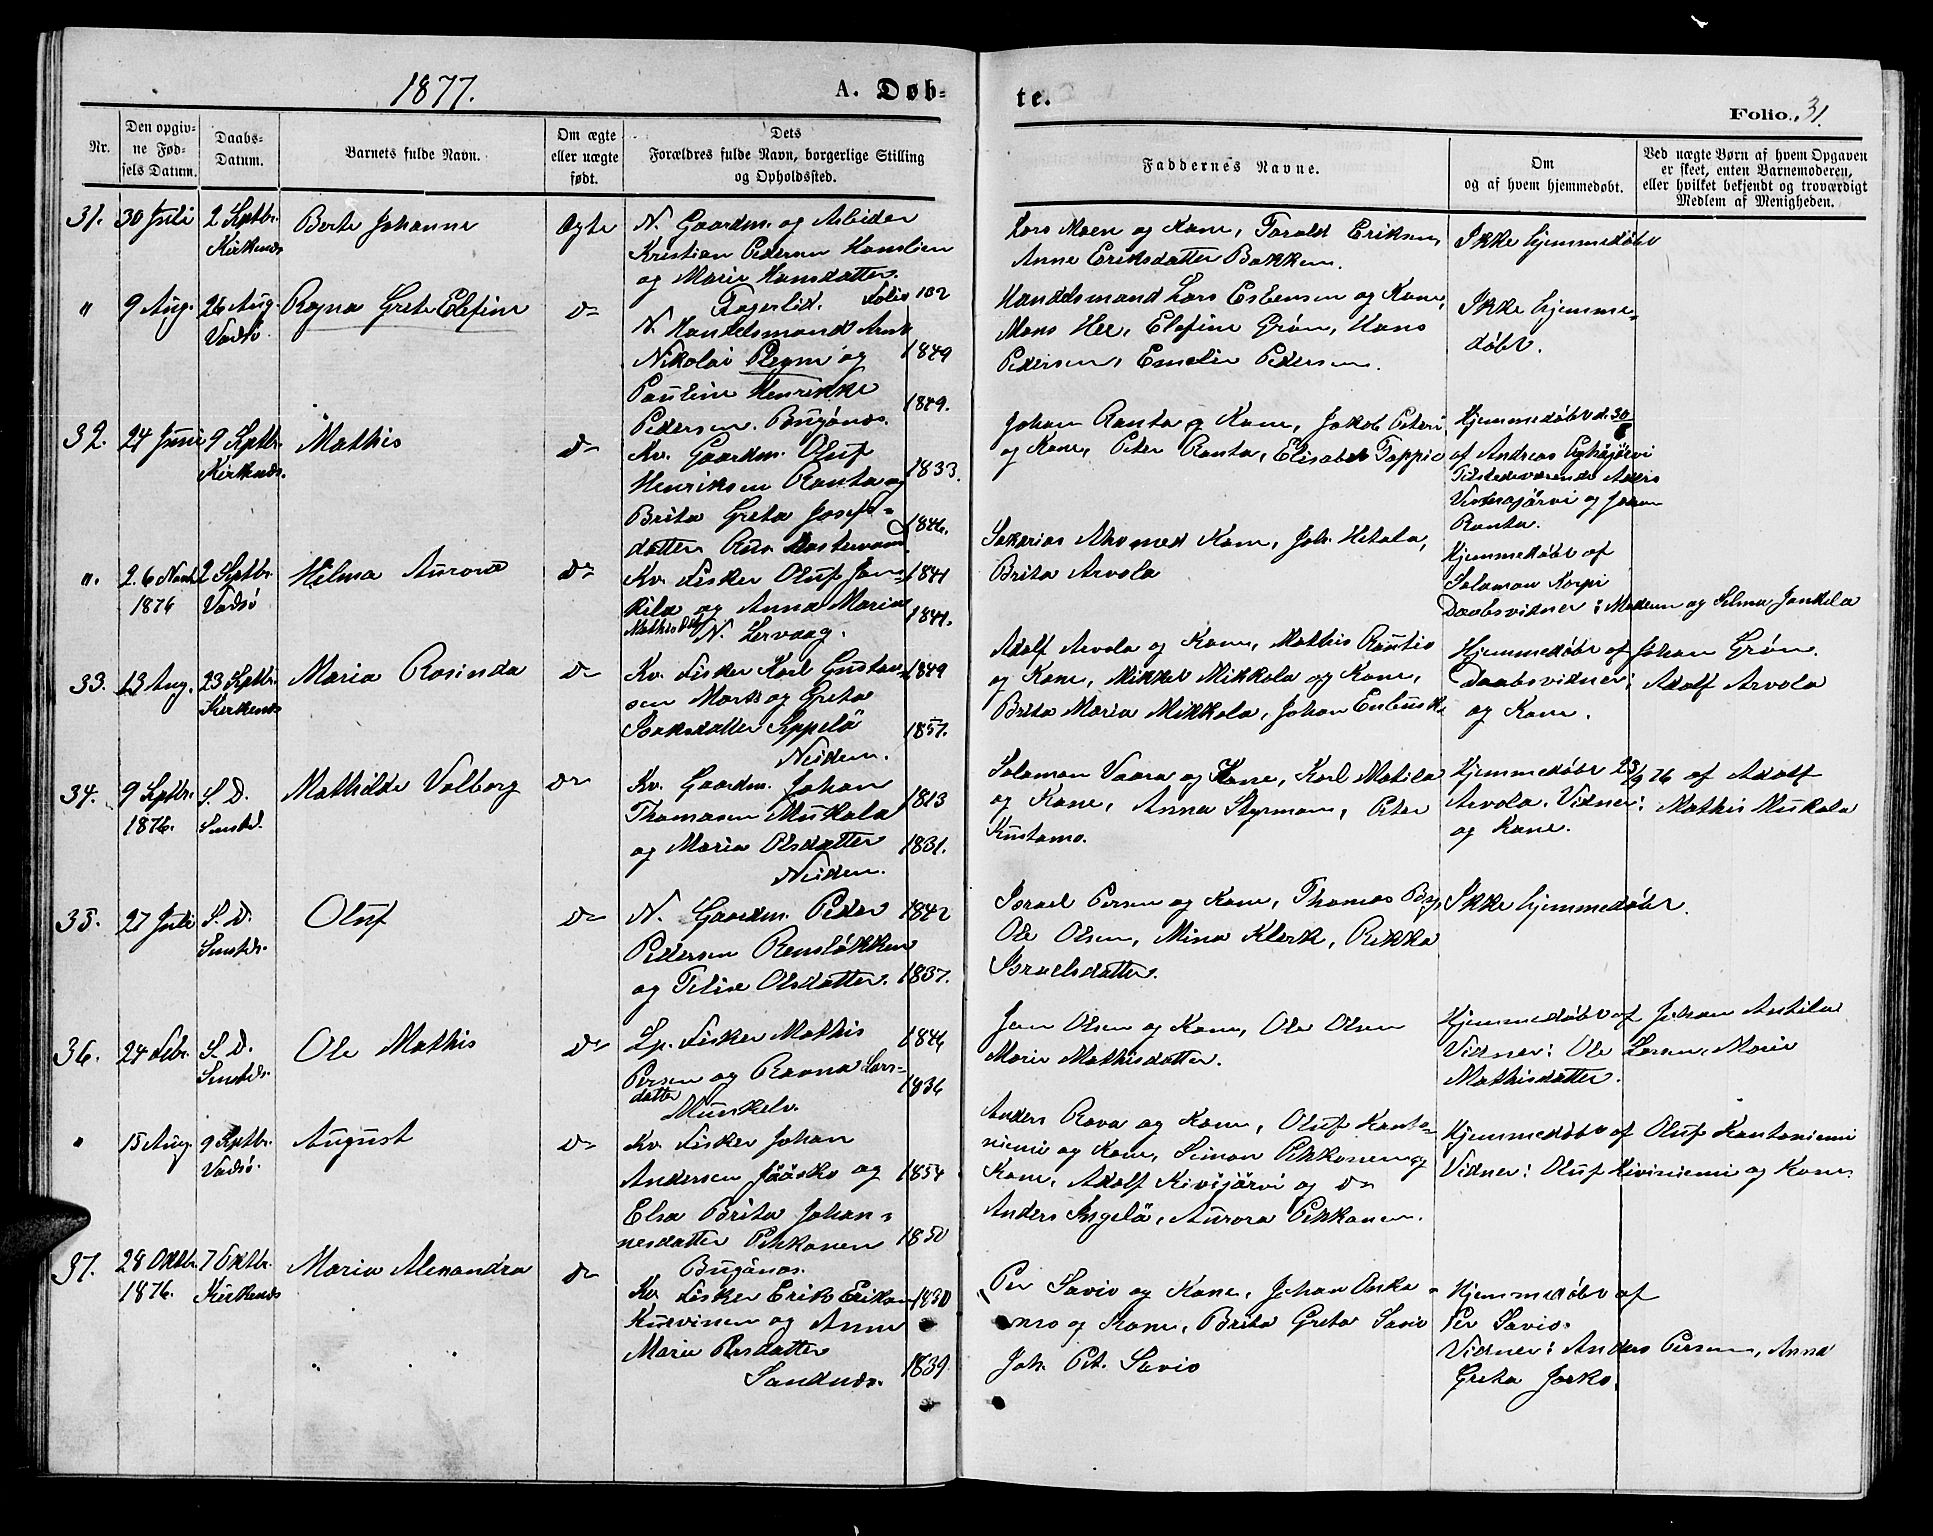 1877.
A. Døb-
te.
Folio 31.
Nr.
Den opgiv-
ne Fød-
sels Datum.
Daabs-
Datum.
Barnets fulde Navn.
Om ægte
eller uægte
født.
Dets
Forældres fulde Navn, borgerlige Stilling
og Opholdssted.
Faddernes Navne.
Om
og af hvem hjemmedøbt.
Ved uægte Børn af hvem Opgaven
er skeet, enten Barnemoderen,
eller hvilket bekjendt og troværdigt
Medlem af Menigheden.
31. 30 Juli 2 Septbr. Kirkenæs Berte Johanne Ægte
N. Gaardm. og Arbeider
Kristian Pedersen Hamlien
og Marie Hansdatter.
Fagerlid. Folio 102
Lars Moen og Kone, Torald Eriksen,
Anne Eriksdatter Bakken.
Ikke hjemmedøbt
" 9 Aug. 26 Aug. Vadsø Ragna Grete Elefine do
N. Handelsmand Arnt
Nikolai Pleym og 1849
Pauline Henrikke
Pedersen. Bugønæs. 1849.
Handelsmand Lars Esbensen og Kone,
Mons Hee, Elefine Grøn, Hans
Pedersen, Emelie Pedersen.
Ikke hjemme-
døbt.
32. 24 Juni 9 Septbr. Kirkenæs. Mathis do
Kv. Gaardm. Oluf
Henriksen Ranta og 1833.
Brita Greta Josefs-
datter 1846.
Johan Ranta og Kone, Jakob Peteri
og Kone, Peter Ranta, Elisabet Toppi
Hjemmedøbt d. 30/6
af Andreas
Tilstedeværende Anders
og Johan
Ranta.
". 2.6 Novb. 1876 2 Septbr. Vadsø Hilma Aurora do
Kv. Fisker Oluf Jan- 1841
kila og Anna Maria
Mathisdtr N. Lervaag. 1841.
Sakarias Aho med Kone, Joh. Hetala,
Brita Arvola
Hjemmedøbt af
Salamon Korpi
Daabsvidner: Moderen og Selma Jankila
33. 13 Aug. 23 Septbr. Kirkenæs Maria Rosinda do
Kv. Fisker Karl Gustav- 1849
sen Mark og Greta
Isaksdatter Seppelä 1857.
Neiden.
Adolf Arvola og Kone, Mathis Rautio
og Kone, Mikkel Mikkola og Kone,
Brita Maria Mikkola, Johan Enbusk
Hjemmedøbt af Johan Grøn.
Daabsvidner: Adolf Arvola
og Kone.
34. 9 Septbr. 1876. S. D. Smsteds. Mathilde Valborg do
Kv. Gaardm. Johan 1813
Thomasen Mukala
og Maria Olsdatter 1831.
Neiden.
Salamon Vaara og Kone, Karl Matila
og Kone, Anna Styrman, Peter
Kustamo.
Hjemmedøbt 23/9 76 af Adolf
Arvola. Vidner: Mathis Mukala
og Kone.
35. 27 Juli S. D. Smsteds. Oluf do
N. Gaardm. Peder 1842
Pedersen Rensløkken
og Telise Olsdatter. 1837.
Israel Persen og Kone, Thomas
Ole Olsen, Mina Klerk, Rikka
Israelsdatter.
Ikke hjemmedøbt.
36. 24 Febr. S. D. Smsteds. Ole Mathis do
Lp. Fisker Mathis 1846
Persen og Ravna Lars- 1836
datter
Munkelv.
Jon Olsen og Kone, Ole Olsen
Marie Mathisdatter.
Hjemmedøbt af Johan Antila
Vidner: Ole Larsen, Marie
Mathisdatter.
" 15 Aug. 9 Septbr. Vadsø. August do
Kv. Fisker Johan
Andersen Jääsko og 1854
Elsa Brita Johan-
nesdatter Pekkanen 1850
Bugønæs.
Anders Rova og Kone, Oluf Kanto-
niemi og Kone, Simon Pekkonen og
Kone, Adolf Kivijärvi og do
Anders Ingelä, Aurora Pekkonen.
Hjemmedøbt af Oluf Kantoniemi
Vidner: Oluf Kiviniemi og Kone.
37. 28 Oktbr. 1876. 7 Oktbr. Kirkenæs Maria Alexandra do
Kv. Fisker Erik Eriksen 1830
Kurvinen og Anne
Marie Persdatter 1839.
Sandnæs.
Per Savio og Kone, Johan
og Kone, Brita Greta Savio
Joh. Pet. Savio
Hjemmedøbt af
Per Savio.
Vidner: Anders Persen, Anna
Greta Jorko.